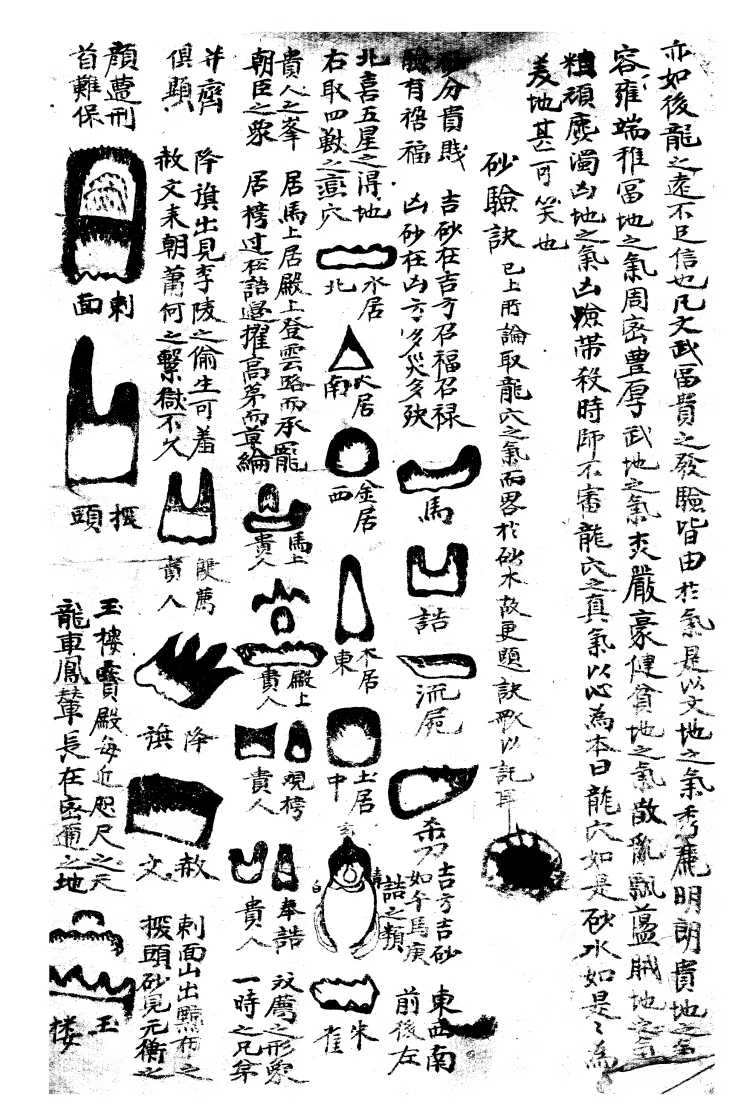 亦如後龍之遠不足信也凡文武富貴之發驗皆由於氣是以文地之氣秀麗明朗貴地之氣
容雍端雅富地之氣周密豊厚武地之氣嚴豪健貧地之氣散亂飄蕩賊地之氣
粗頑麁濁凶地之氣凶險帶殺時師不審龍穴之真氣以心為本曰龍穴如是砂水如是〻為
美地甚可笑也
砂驗訣
已上所論取龍穴之氣而畧於砂水故更題訣歌以託耳
砂分貴賎 吉砂在吉方召福召禄
有禍福 凶砂在凶方多災多殃
馬
誥
流屍
刀
吉方吉砂
如午馬庚
誥之類
東西南
前後左
北喜五星之得地
右取四獸之穴
水居
北
火居
南
金居
西
木居
東
土居
中
玄
白
青
朱
雀
貴人之峯 居馬上居殿上登雲路而承寵
朝臣之象 居榜过於誥邉擢高苐而草綸
馬上
貴人
殿上
貴人
視榜
貴人
奉誥
貴人
文薦之形象
一時之兄弟
并齊
俱顯
降旗出見李陵之偷生可羞
赦文来朝蕭何之繫獄不久
雙薦
貴人
降
旗
赦
文
刺面山出黥布之
掇頭砂見元衡之
顔遭刑
首難保
刺
面
掇
頭
玉樓寶殿每近咫尺之天
龍車鳳輦長在密邇之地
玉
楼